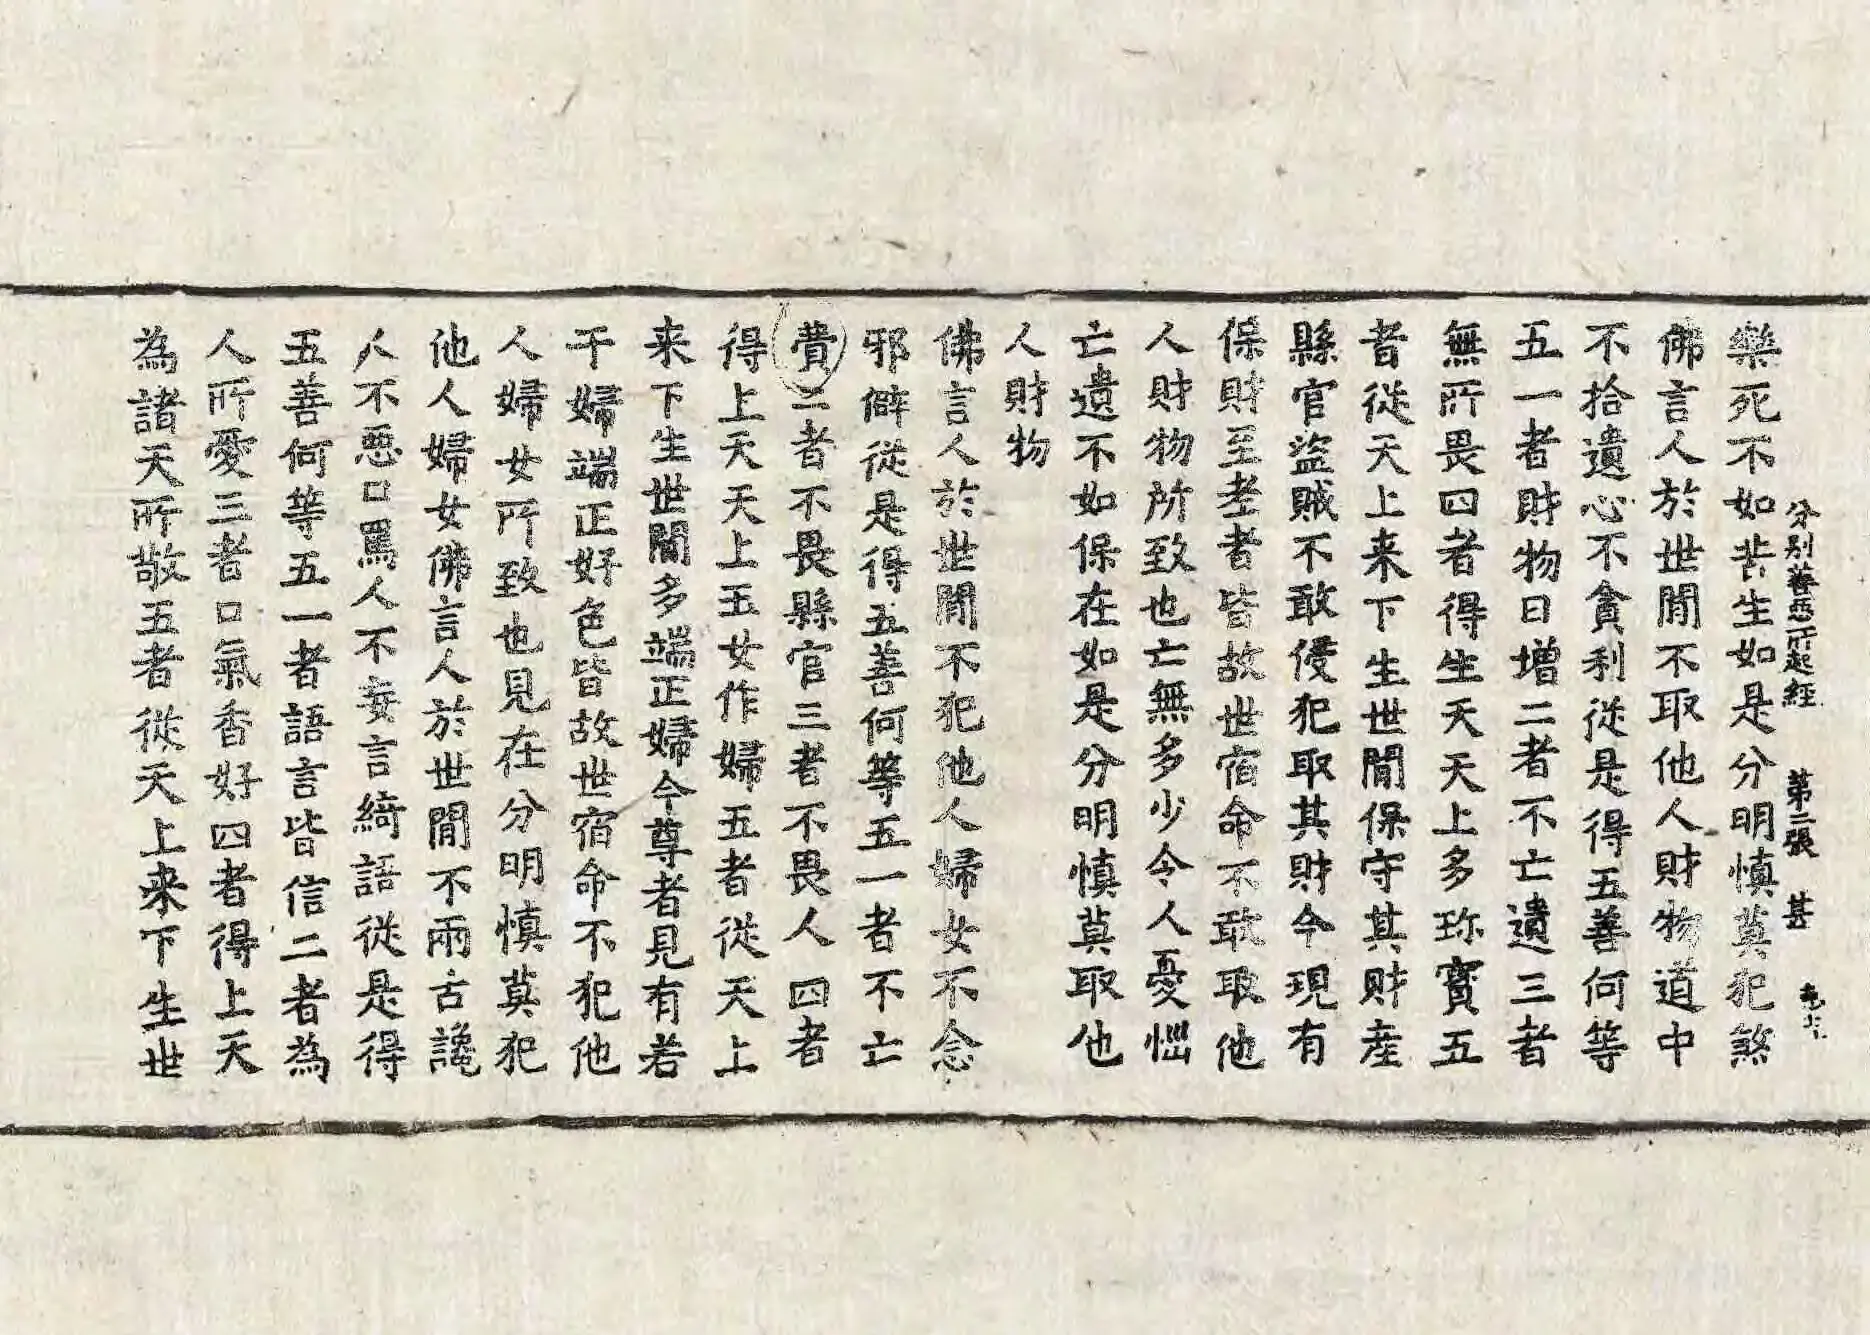 分別善惡所起經　第二張　甚
樂死不如苦生如是分明慎莫犯煞
佛言人於世閒不取他人財物道中
不拾遺心不貪利從是得五善何等
五一者財物日增二者不亡遺三者
無所畏四者得生天天上多珎寳五
者從天上来下生世閒保守其財産
縣官盜賊不敢侵犯取其財今現有
保財至老者皆故世宿命不敢取他
人財物所致也亡無多少令人憂惱
亡遺不如保在如是分明慎莫取他
人財物
佛言人於世閒不犯他人婦女不念
邪僻從是得五善何等五一者不亡
費二者不畏縣官三者不畏人四者
得上天天上玉女作婦五者從天上
来下生世閒多端正婦今尊者見有若
干婦端正好色皆故世宿命不犯他
人婦女所致也見在分明慎莫犯
他人婦女佛言人於世閒不兩舌讒
人不惡口罵人不妄言綺語從是得
五善何等五一者語言皆信二者為
人所愛三者口氣香好四者得上天
為諸天所敬五者從天上来下生世